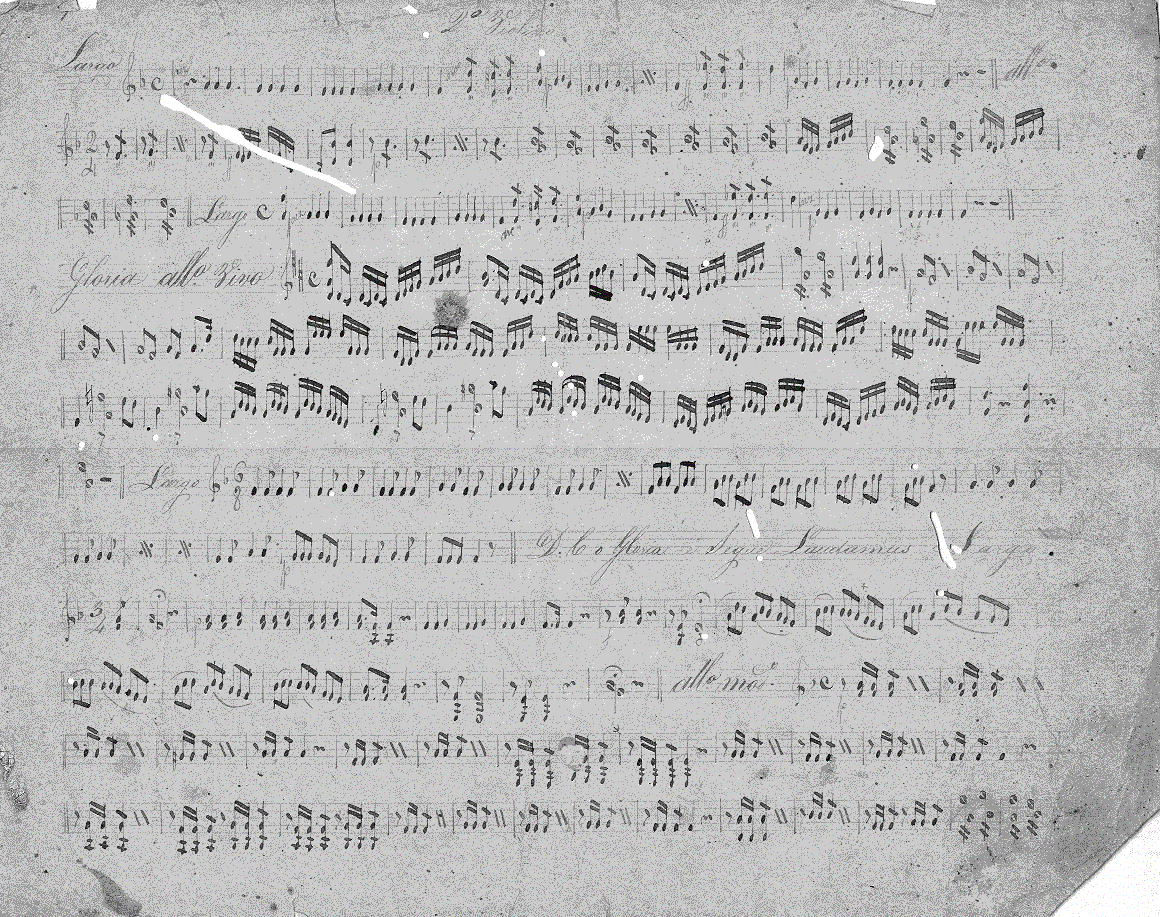 2º Violino
Largo
allº
Largo
Gloria allº Vivo
Largo
D. C o Gloria e Segue Laudamus Largo.
allº modº